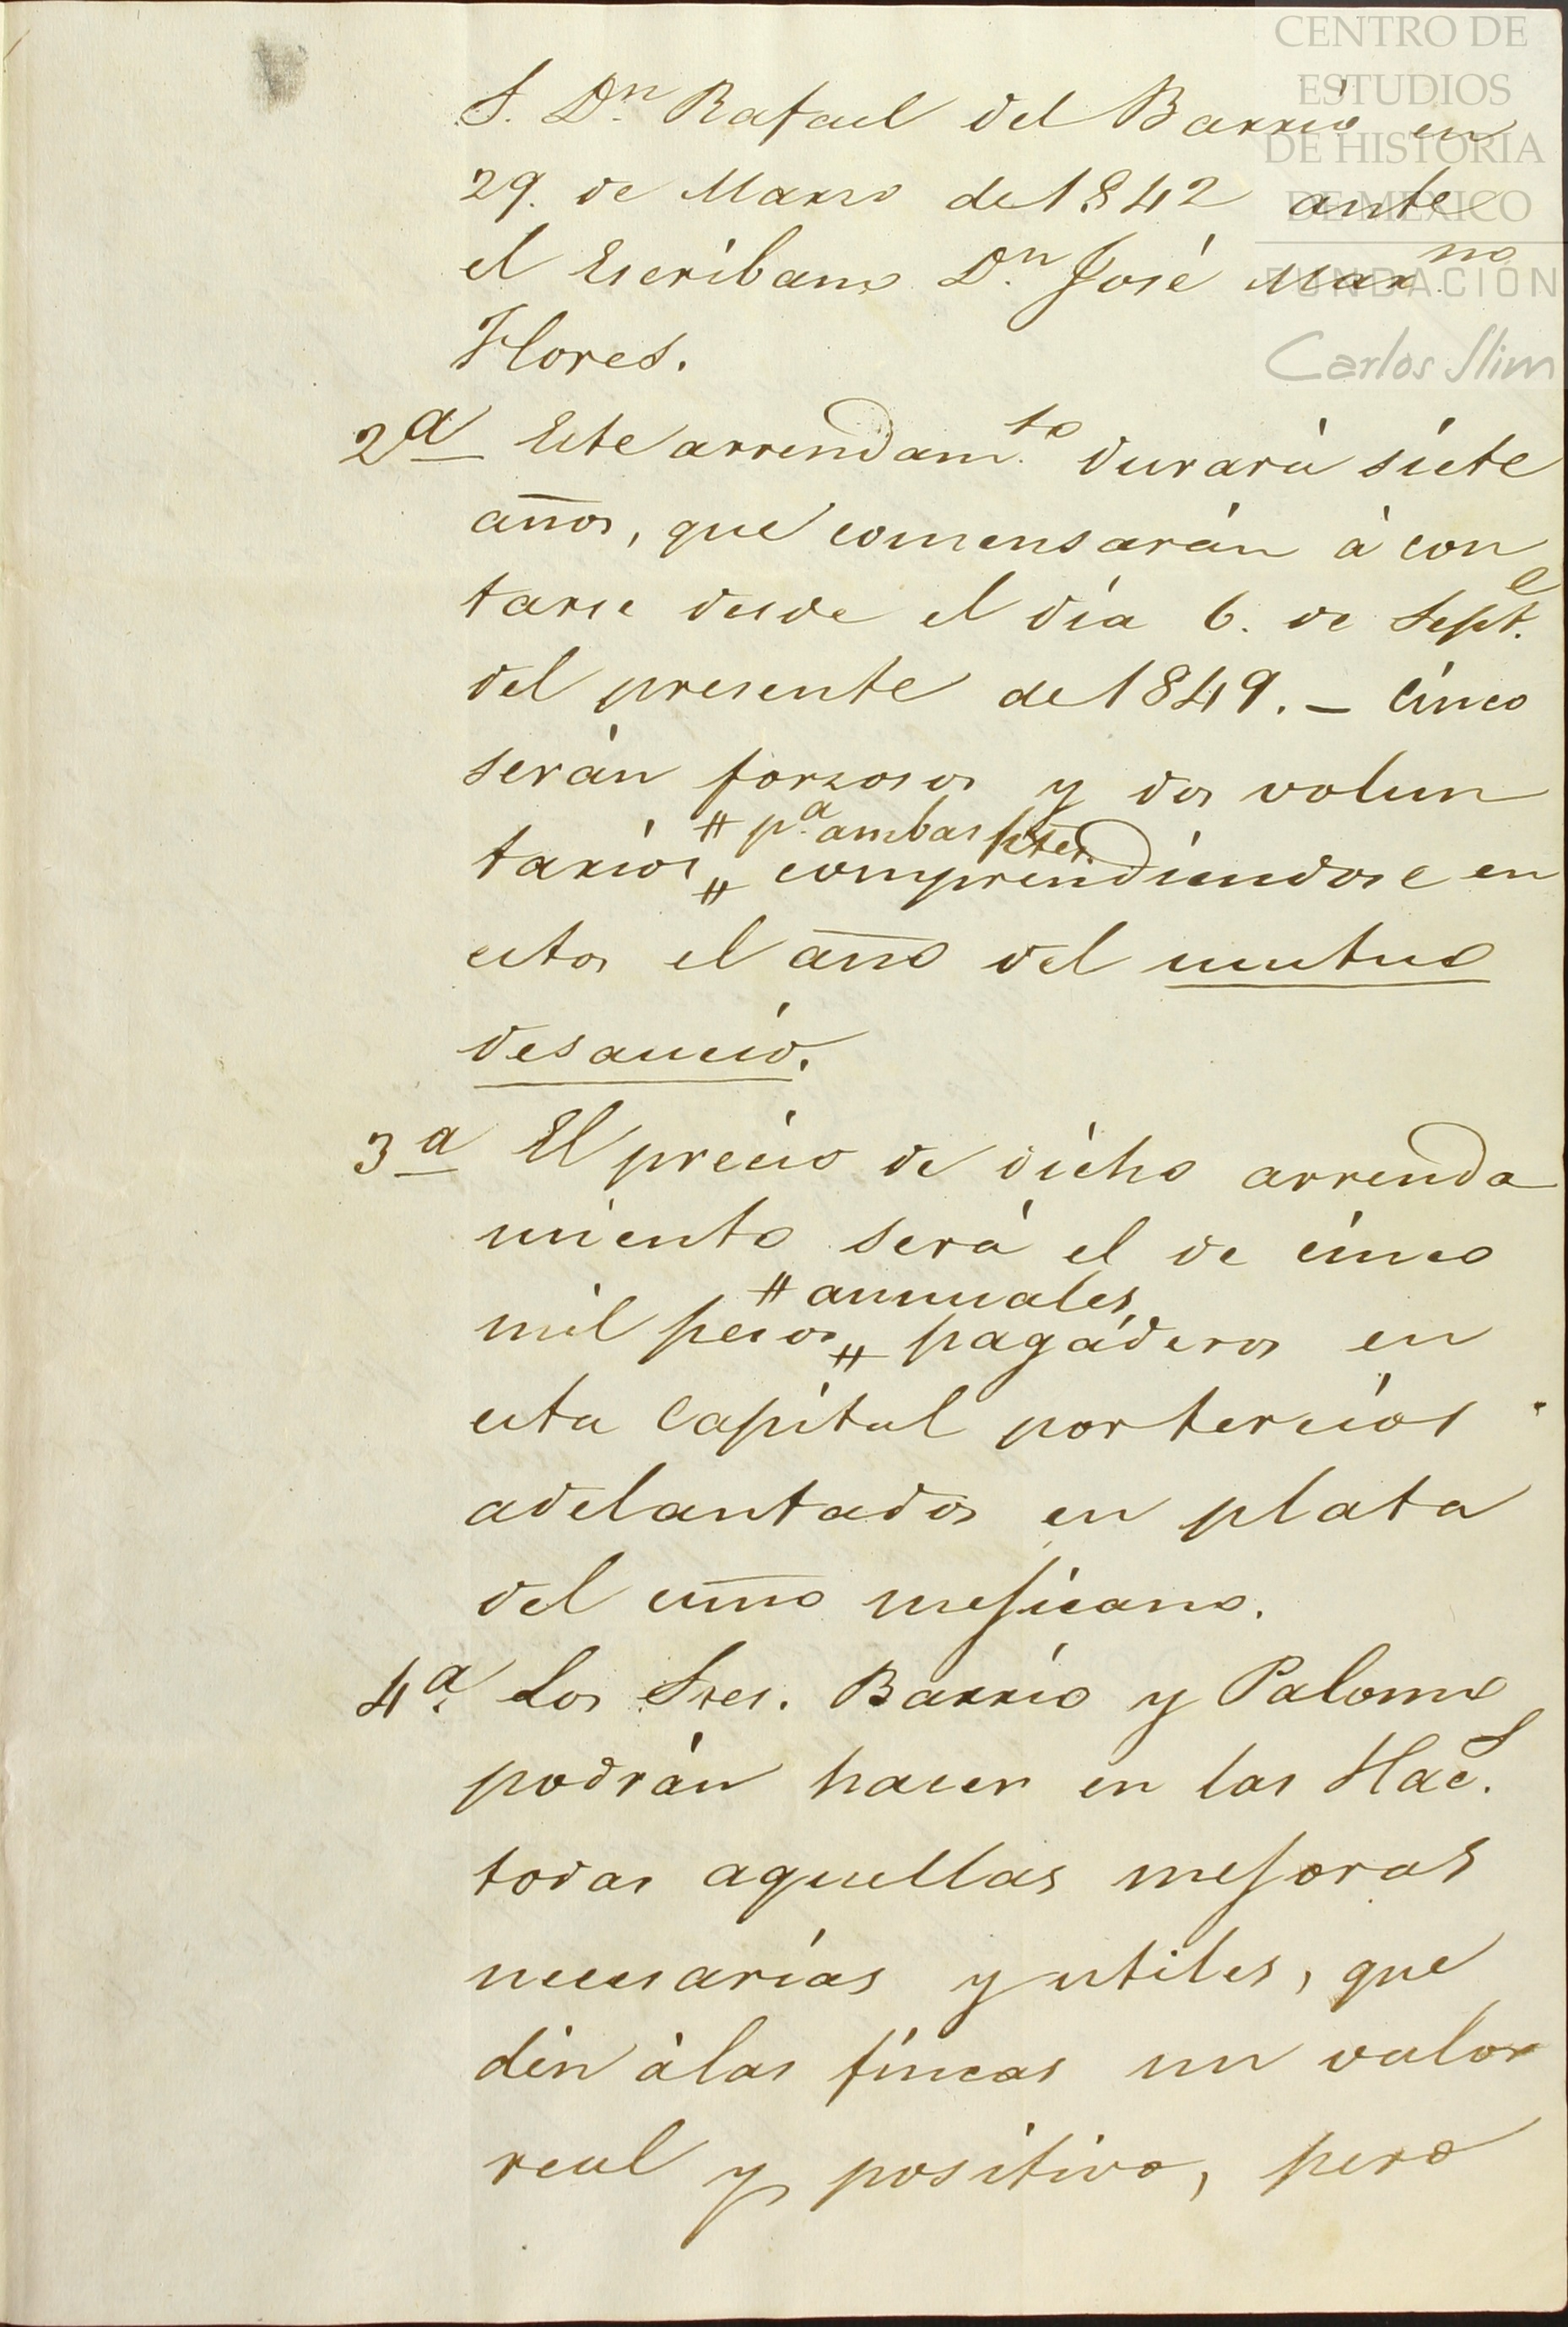 CENTRO DE
ESTUDIOS
DE HISTORIA
DE MEXICO
FUNDACIÓN
Carlos Slim
S. Dn. Rafael del Barrio en
29. de Marzo de 1842 ante
el Escribano Dn. José Marno.
Flores.
2a Este arrendamto. durará siete
años, que comensarán à con
tarse desde el día 6. de Septe.
del presente de 1849. – Cinco
serán forzosos y dos volun
# pa. ambas ptes.
tarios # comprendiendose en
estos el año del mutuo
desaucio.
3a El precio de dicho arrenda
miento será el de cinco
# annuales,
mil pesos # pagáderos en
esta Capital por tercios
adelantados en plata
del cuño mejicano.
4a. Los Sres. Barrio y Palomo
podrán hacer en las Hacs.
todas aquellas mejoras
necesarias y utiles, que
dén à las fincas un valor
real y positivo, pero